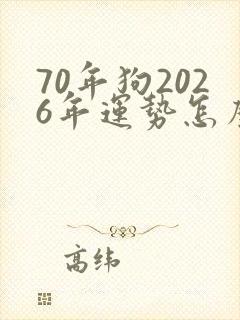 70年狗202
6年运势怎
高纬